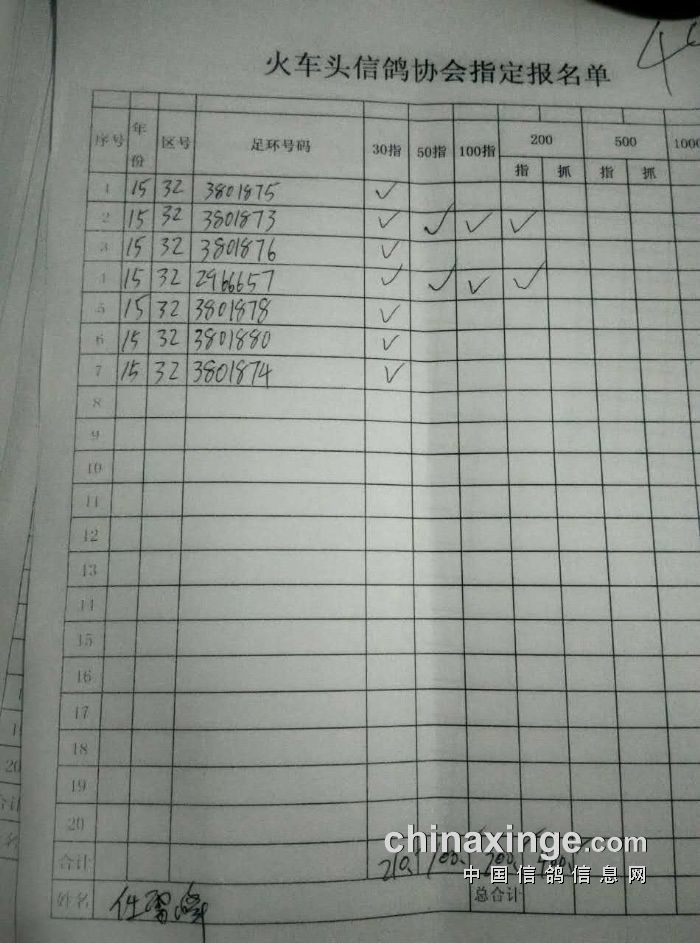 火车头信鸽协会指定报名单
序号 年份 区号 足环号码 30指 50指 100指 200 500 1000
指 抓 指 抓
1 15 32 3801875 ✓
2 15 32 3801873 ✓ ✓ ✓ ✓
3 15 32 3801876 ✓
4 15 32 2966657 ✓ ✓ ✓ ✓
5 15 32 3801878 ✓
6 15 32 3801880 ✓
7 15 32 3801874 ✓
8
9
10
11
12
13
14
15
16
17
18
19
20
合计 210 100 200 400
姓名 任 总合计
chinaxinge.com
中国信鸽信息网
20